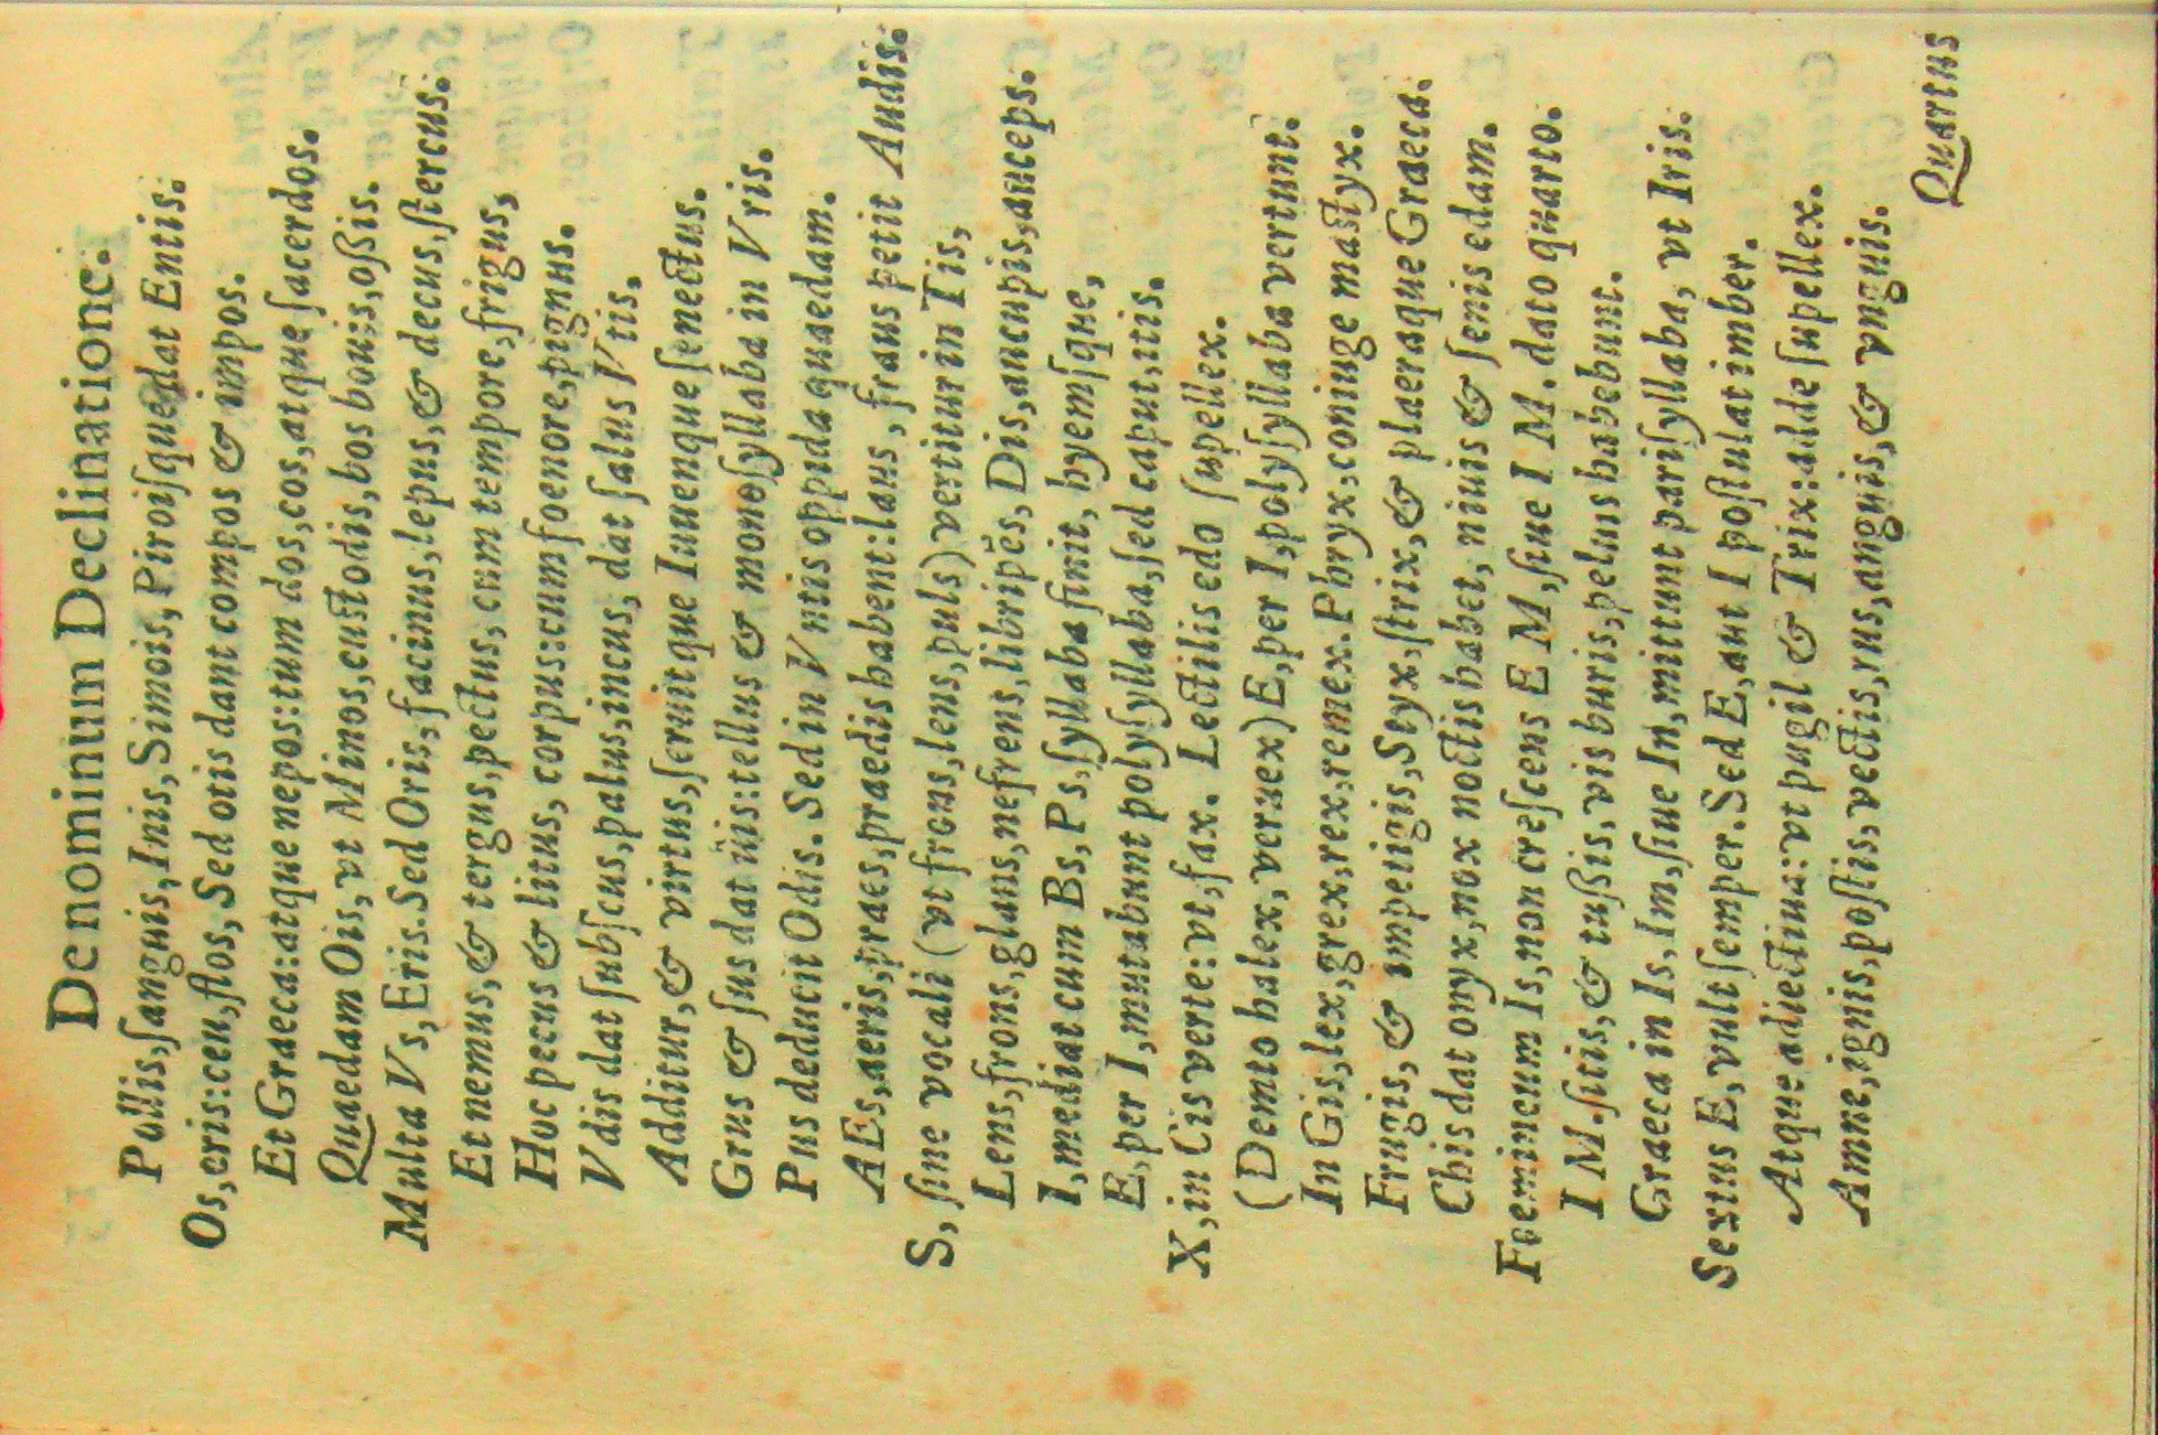 De nominum Declinatione.
Pollis, ſanguis, Inis, Simois, Piroiſque dat Entis.
Os, oris: ceu, flos, Sed otis dant compos & impos.
Et Graeca: atque nepos: tum dos, cos, atque ſacerdos.
Quaedam Ois, vt Minos, cuſtodis, bos bouis, oßis.
Multa Vs, Eris. Sed Oris, facinus, lepus, & decus, ſtercus.
Et nemus, & tergus, pectus, cum tempore, frigus,
Hoc pecus & litus, corpus: cum foenore, pignus.
Vdis dat ſubſcus, palus, incus, dat ſalus Vtis,
Additur, & virtus, ſeruitque Iuuenque ſenectus.
Grus & ſus dat üis: tellus & monoſyllaba in Vris.
Pus deducit Odis. Sed in Vntis oppida quaedam.
AEs, aeris, praes, praedis habent: laus, fraus petit Audis.
S, ſine vocali (vt frons, lens, puls) vertitur in Tis,
Lens, frons, glans, nefrens, libripēs, Dis, aucupis, auceps.
I, mediat cum Bs, Ps, ſyllaba finit, hyemſque,
E, per I, mutabunt polyſyllaba, ſed caput, itis.
X, in Cis verte: vt, fax. Lectilis edo ſupellex.
(Demto halex, veruex) E, per I, polyſyllaba vertunt.
In Gis, lex, grex, rex, remex. Phryx, coniuge maſtyx.
Frugis, & impetigis, Styx, ſtrix, & plaeraque Graeca.
Chis dat onyx, nox noctis habet, niuis & ſenis edam.
Foemineum Is, non creſcens E M, ſiue I M. dato quarto.
I M. ſitis, & tußis, vis buris, peluis habebunt.
Graeca in Is, Im, ſiue In, mittunt pariſyllaba, vt Iris.
Sextus E, vult ſemper. Sed E, aut I poſtulat imber.
Atque adiectiua: vt pugil & Trix: adde ſupellex.
Amne, ignis, poſtis, vectis, rus, anguis, & vnguis.
Quartus